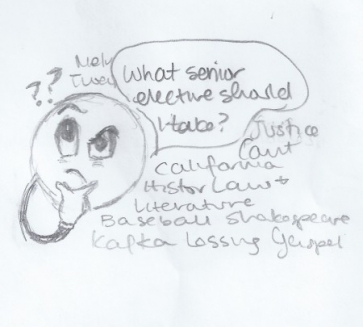 ??
What senior
elective should
I take?
Justice
California
Histor Law +
Literature
Baseball Shakespeare
Kafka Lossing Gospel